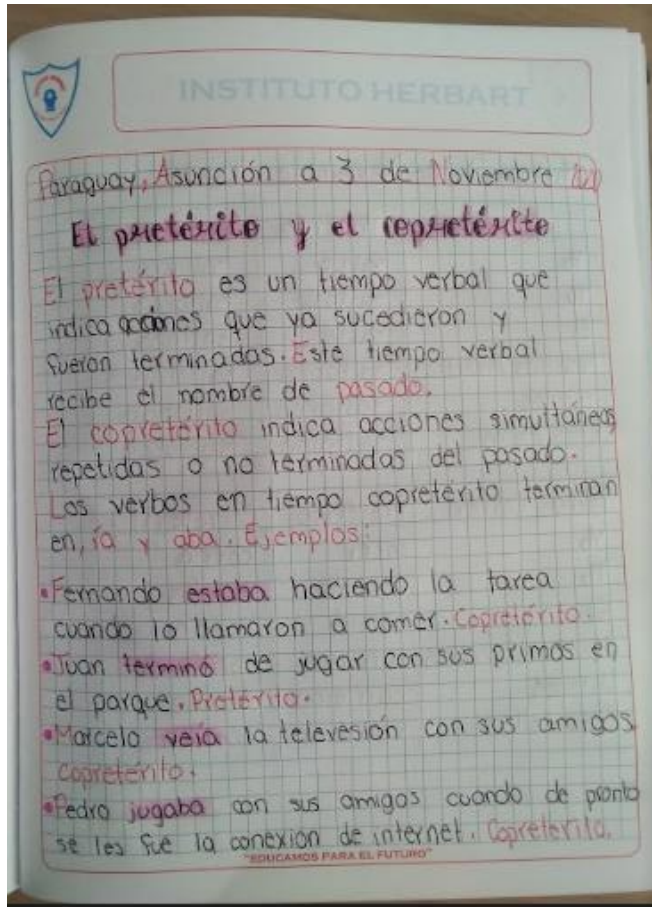 INSTITUTO HERBART
Paraguay, Asunción a 3 de Noviembre
El pretérito y el copretérito
El pretérito es un tiempo verbal que
indica acciones que ya sucedieron y
fueron terminadas. Este tiempo verbal
recibe el nombre de pasado.
El copretérito indica acciones simultáneas
repetidas o no terminadas del pasado.
Los verbos en tiempo copretérito terminan
en, ía y aba. Ejemplos:
•Fernando estaba haciendo la tarea
cuando lo llamaron a comer. Copretérito.
•Juan terminó de jugar con sus primos en
el parque. Pretérito.
•Marcelo veía la televesión con sus amigos
Copretérito.
•Pedro jugaba con sus amigos cuando de pronto
se les fue la conexion de internet. Copreterito.
"EDUCAMOS PARA EL FUTURO"